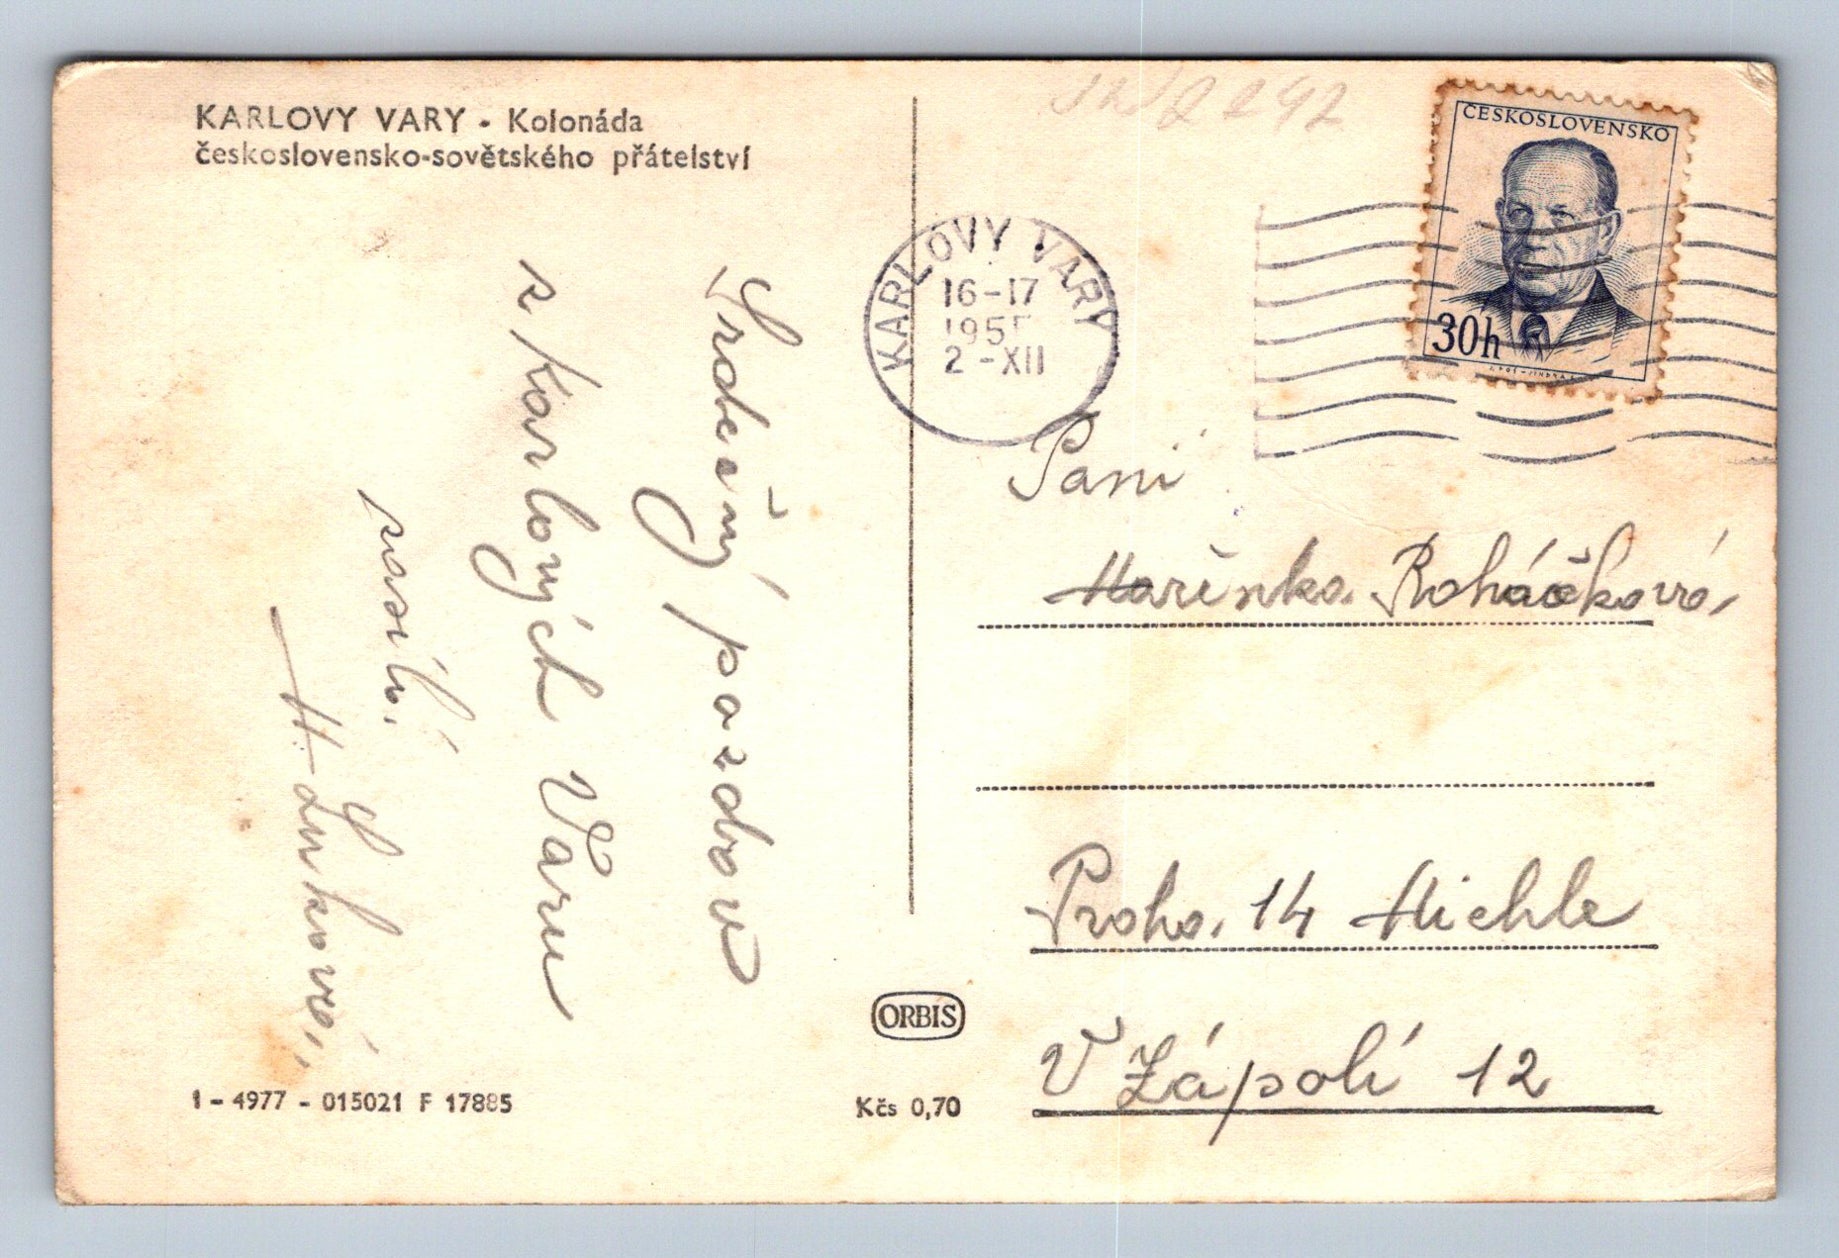 KARLOVY VARY - Kolonáda
československo-sovětského přátelství
Srdečný pozdrav
z Karlových Varů
posílá
H. Zuková,
1 - 4977 - 015021 F 17885
ORBIS
Kčs 0,70
ČESKOSLOVENSKO
30h
KARLOVY VARY
16-17
195
2 -XII
Paní
Mařenka Roháčková,
Praha 14 Michle
V Zápolí 12